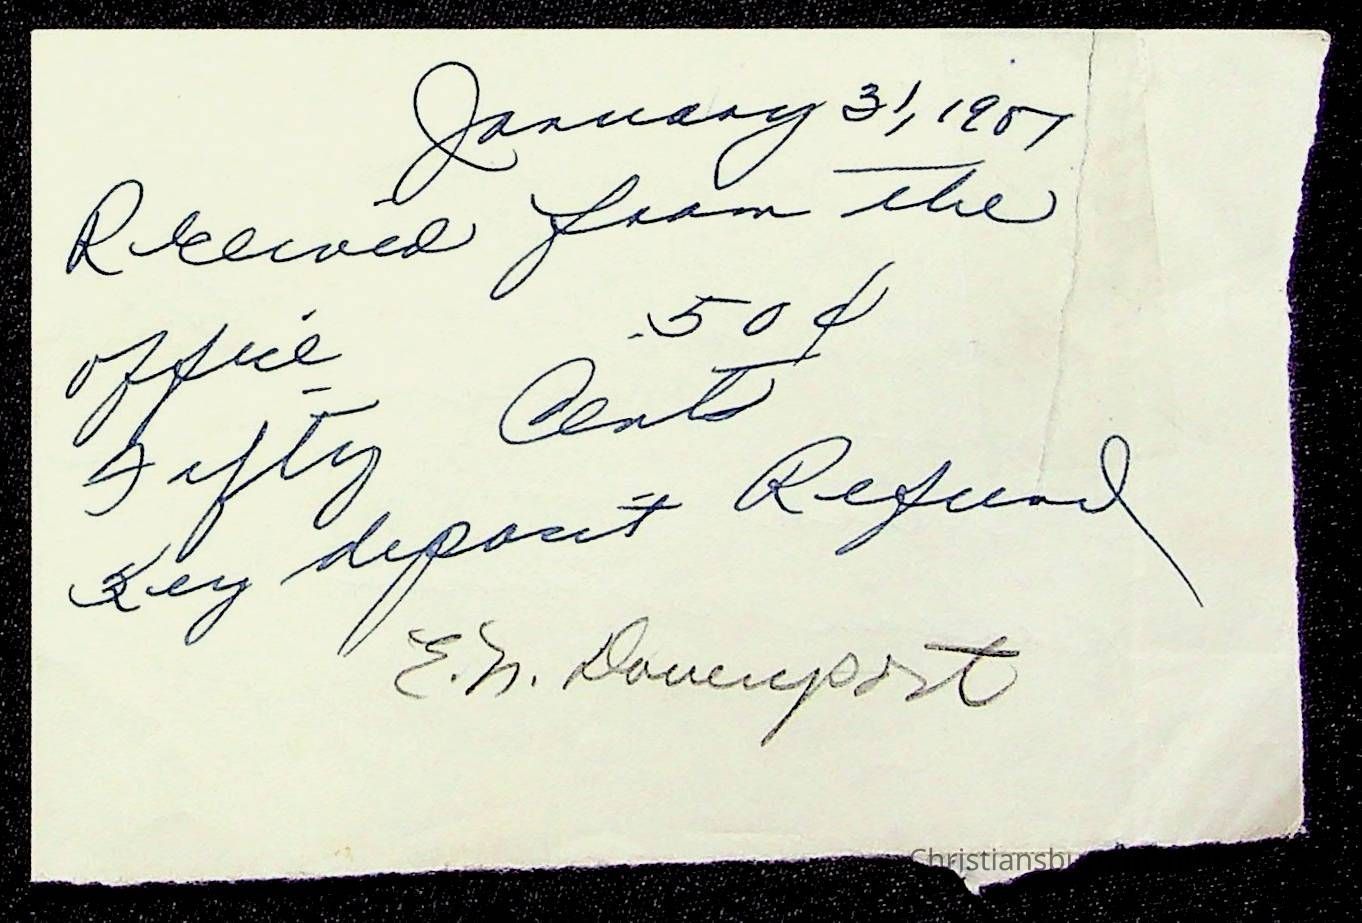 January 31,
Received from the
office .50¢
Fifty Cents
Key deposit Refund
E.N. Davenport
Christiansbu